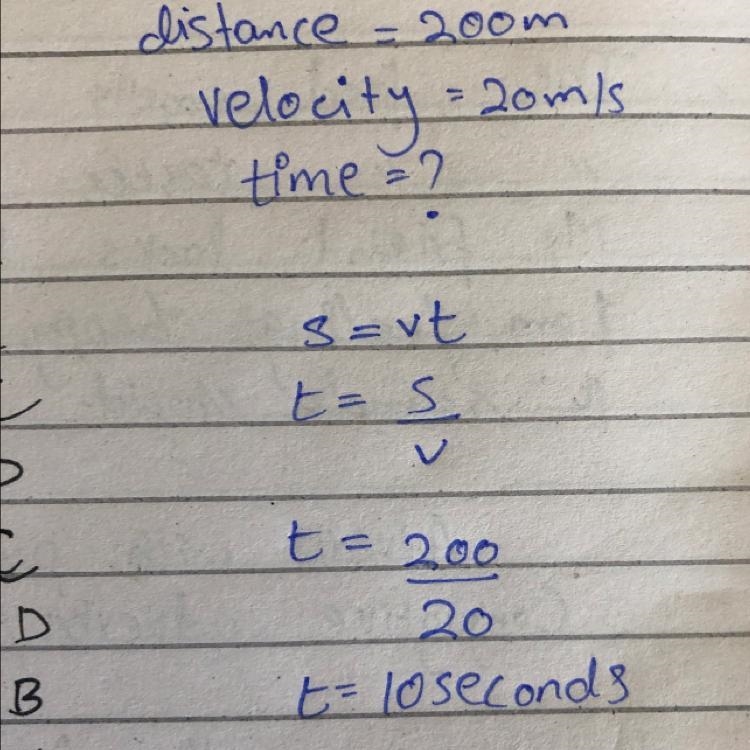 distance = 200m
velocity = 20m/s
time = ?
s = vt
t = s/v
t = 200/20
D
B t = 10 seconds